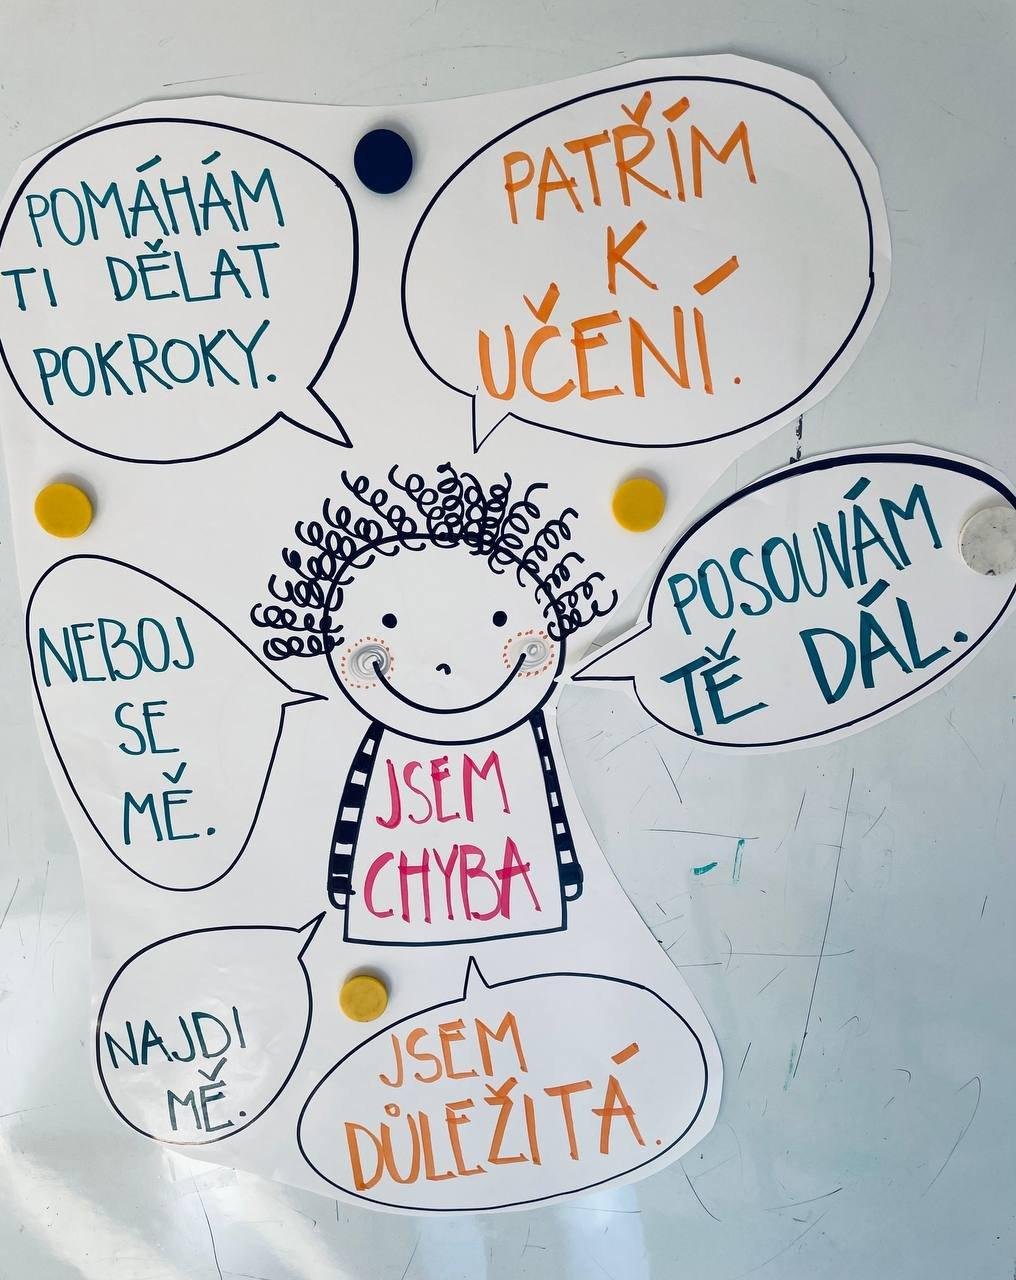 POMÁHÁM
TI DĚLAT
POKROKY.
PATŘÍM
K
UČENÍ.
NEBOJ
SE
MĚ.
POSOUVÁM
TĚ DÁL.
JSEM
CHYBA
NAJDI
MĚ.
JSEM
DŮLEŽITÁ.